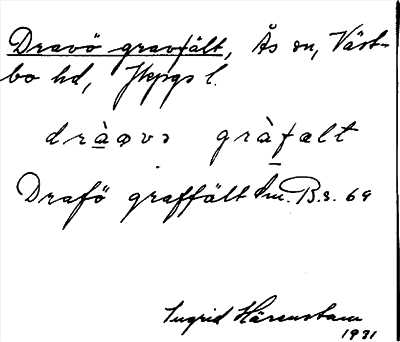 Dravö gravfält, Ås sn, Väst-
bo hd, Jkpgs l.
dràøvɔ gràfælt
Drafö graffält Sm. B.s. 69
Ingrid Härenstam
1931